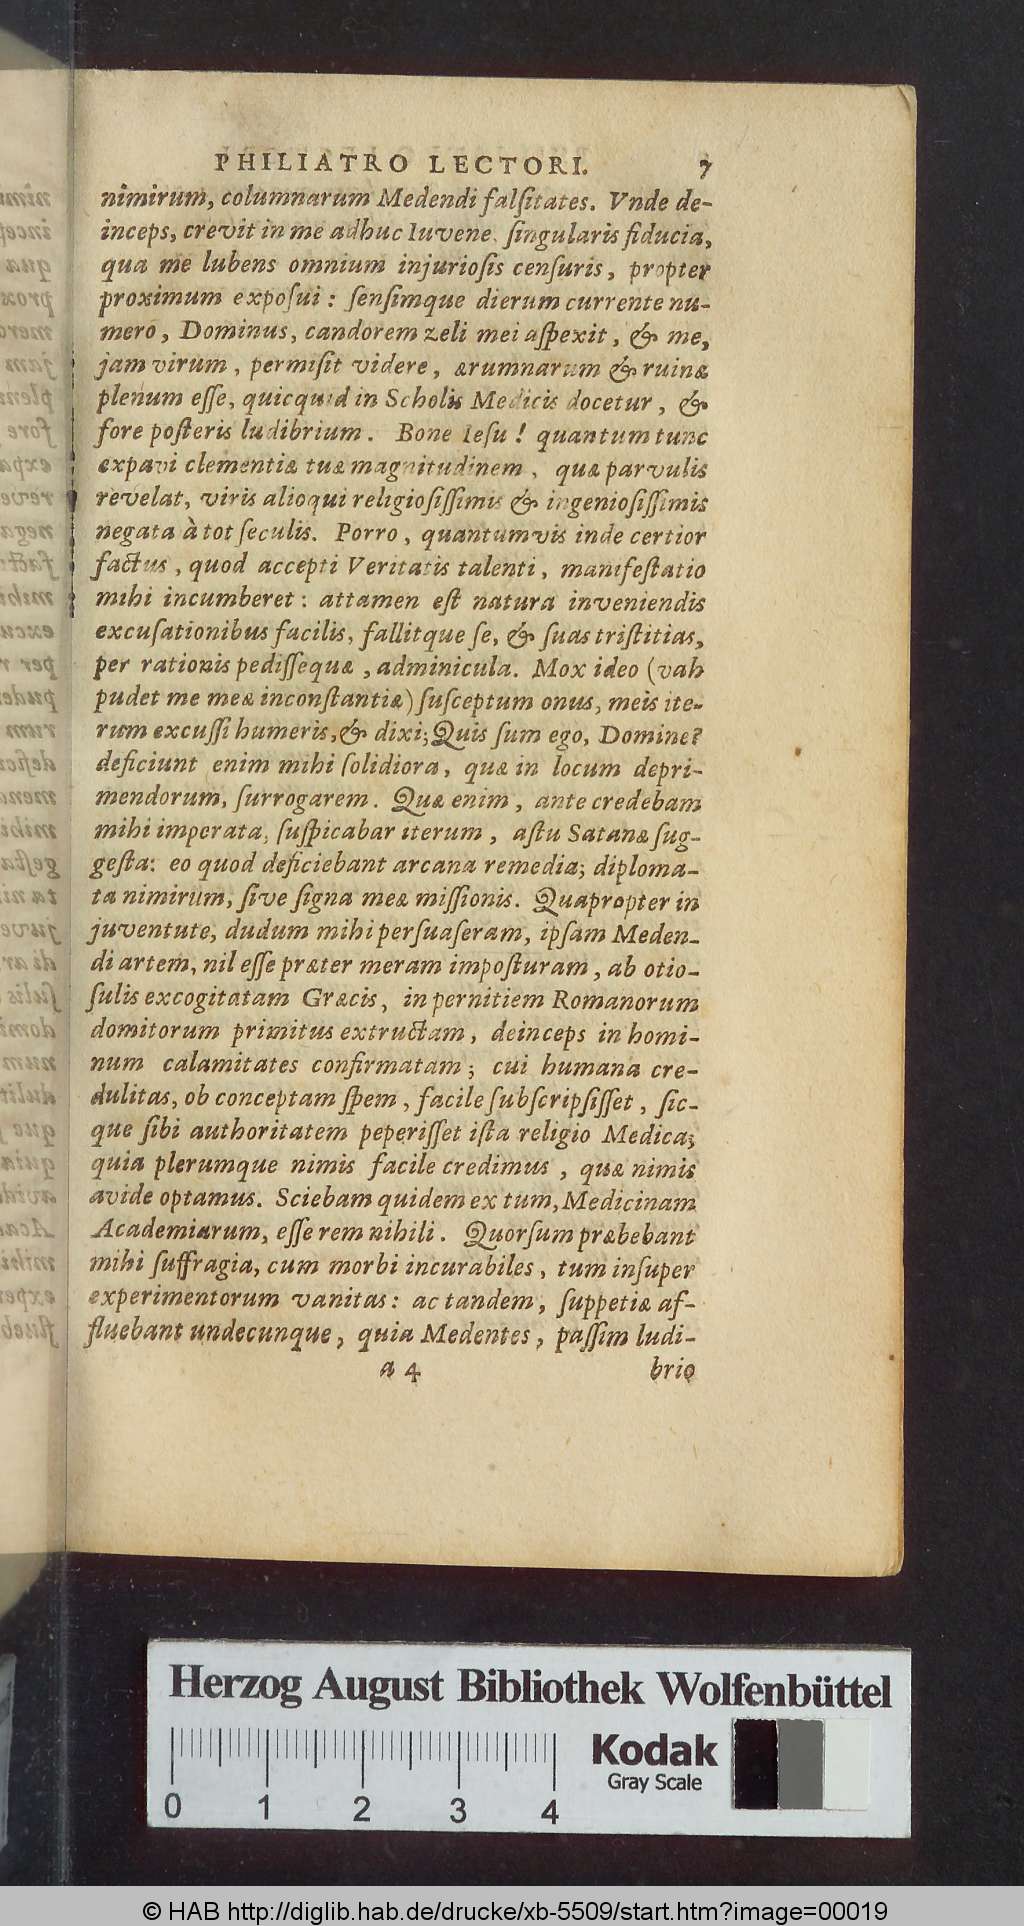 PHILIATRO LECTORI. 7
nimirum, columnarum Medendi falſitates. Vnde de-
inceps, crevit in me adhuc Iuvene ſingularis fiducia,
qua me lubens omnium injurioſis cenſuris, propter
proximum expoſui: ſenſimque dierum currente nu-
mero, Dominus, candorem zeli mei aſpexit, & me,
jam virum, permiſit videre, ærumnarum & ruinæ
plenum eſſe, quicquid in Scholis Medicis docetur, &
fore poſteris ludibrium. Bone Ieſu! quantum tunc
expavi clementiæ tuæ magnitudinem, quæ parvulis
revelat, viris alioqui religioſiſſimis & ingenioſiſſimis
negata à tot ſeculis. Porro, quantumvis inde certior
factus, quod accepti Veritatis talenti, manifeſtatio
mihi incumberet: attamen eſt natura inveniendis
excuſationibus facilis, fallitque ſe, & ſuas triſtitias,
per rationis pediſſequæ, adminicula. Mox ideo (vah
pudet me meæ inconſtantiæ) ſuſceptum onus, meis ite-
rum excuſſi humeris, & dixi; Quis ſum ego, Domine?
deficiunt enim mihi ſolidiora, quæ in locum depri-
mendorum, ſurrogarem. Quæ enim, ante credebam
mihi imperata, ſuſpicabar iterum, aſtu Satanæ ſug-
geſta: eo quod deficiebant arcana remedia; diploma-
ta nimirum, ſive ſigna meæ miſſionis. Quapropter in
juventute, dudum mihi perſuaſeram, ipſam Meden-
di artem, nil eſſe præter meram impoſturam, ab otio-
ſulis excogitatam Græcis, in pernitiem Romanorum
domitorum primitus extructam, deinceps in homi-
num calamitates confirmatam; cui humana cre-
dulitas, ob conceptam ſpem, facile ſubſcripſiſſet, ſic-
que ſibi authoritatem peperiſſet iſta religio Medica;
quia plerumque nimis facile credimus, quæ nimis
avide optamus. Sciebam quidem ex tum, Medicinam
Academiarum, eſſe rem nihili. Quorſum præbebant
mihi ſuffragia, cum morbi incurabiles, tum inſuper
experimentorum vanitas: ac tandem, ſuppetiæ af-
fluebant undecunque, quia Medentes, paſſim ludi-
a 4 brio
Herzog August Bibliothek Wolfenbüttel
Kodak
Gray Scale
0 1 2 3 4
© HAB http://diglib.hab.de/drucke/xb-5509/start.htm?image=00019